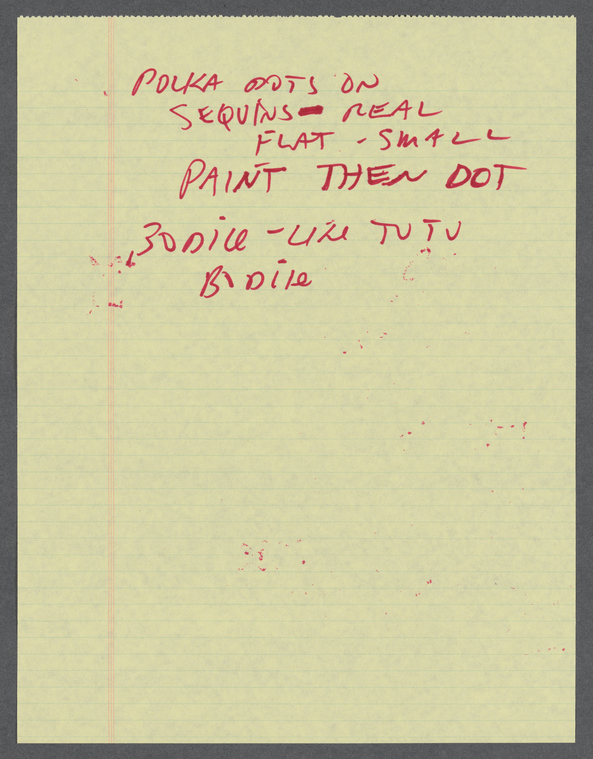 POLKA DOTS ON
SEQUINS - REAL
FLAT - SMALL
PAINT THEN DOT
BODICE - LIKE TUTU
BODICE